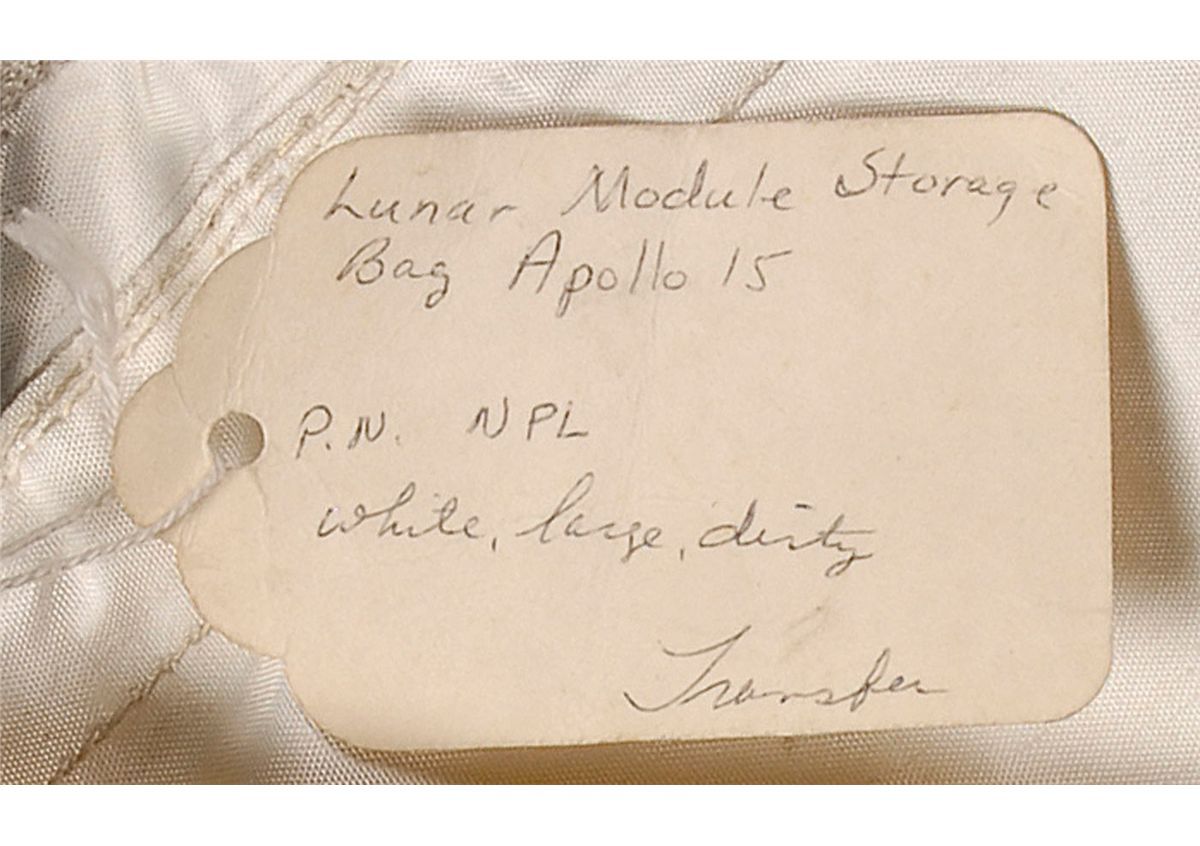 Lunar Module Storage
Bag Apollo 15
P.N. NPL
white, large, dirty
Transfer